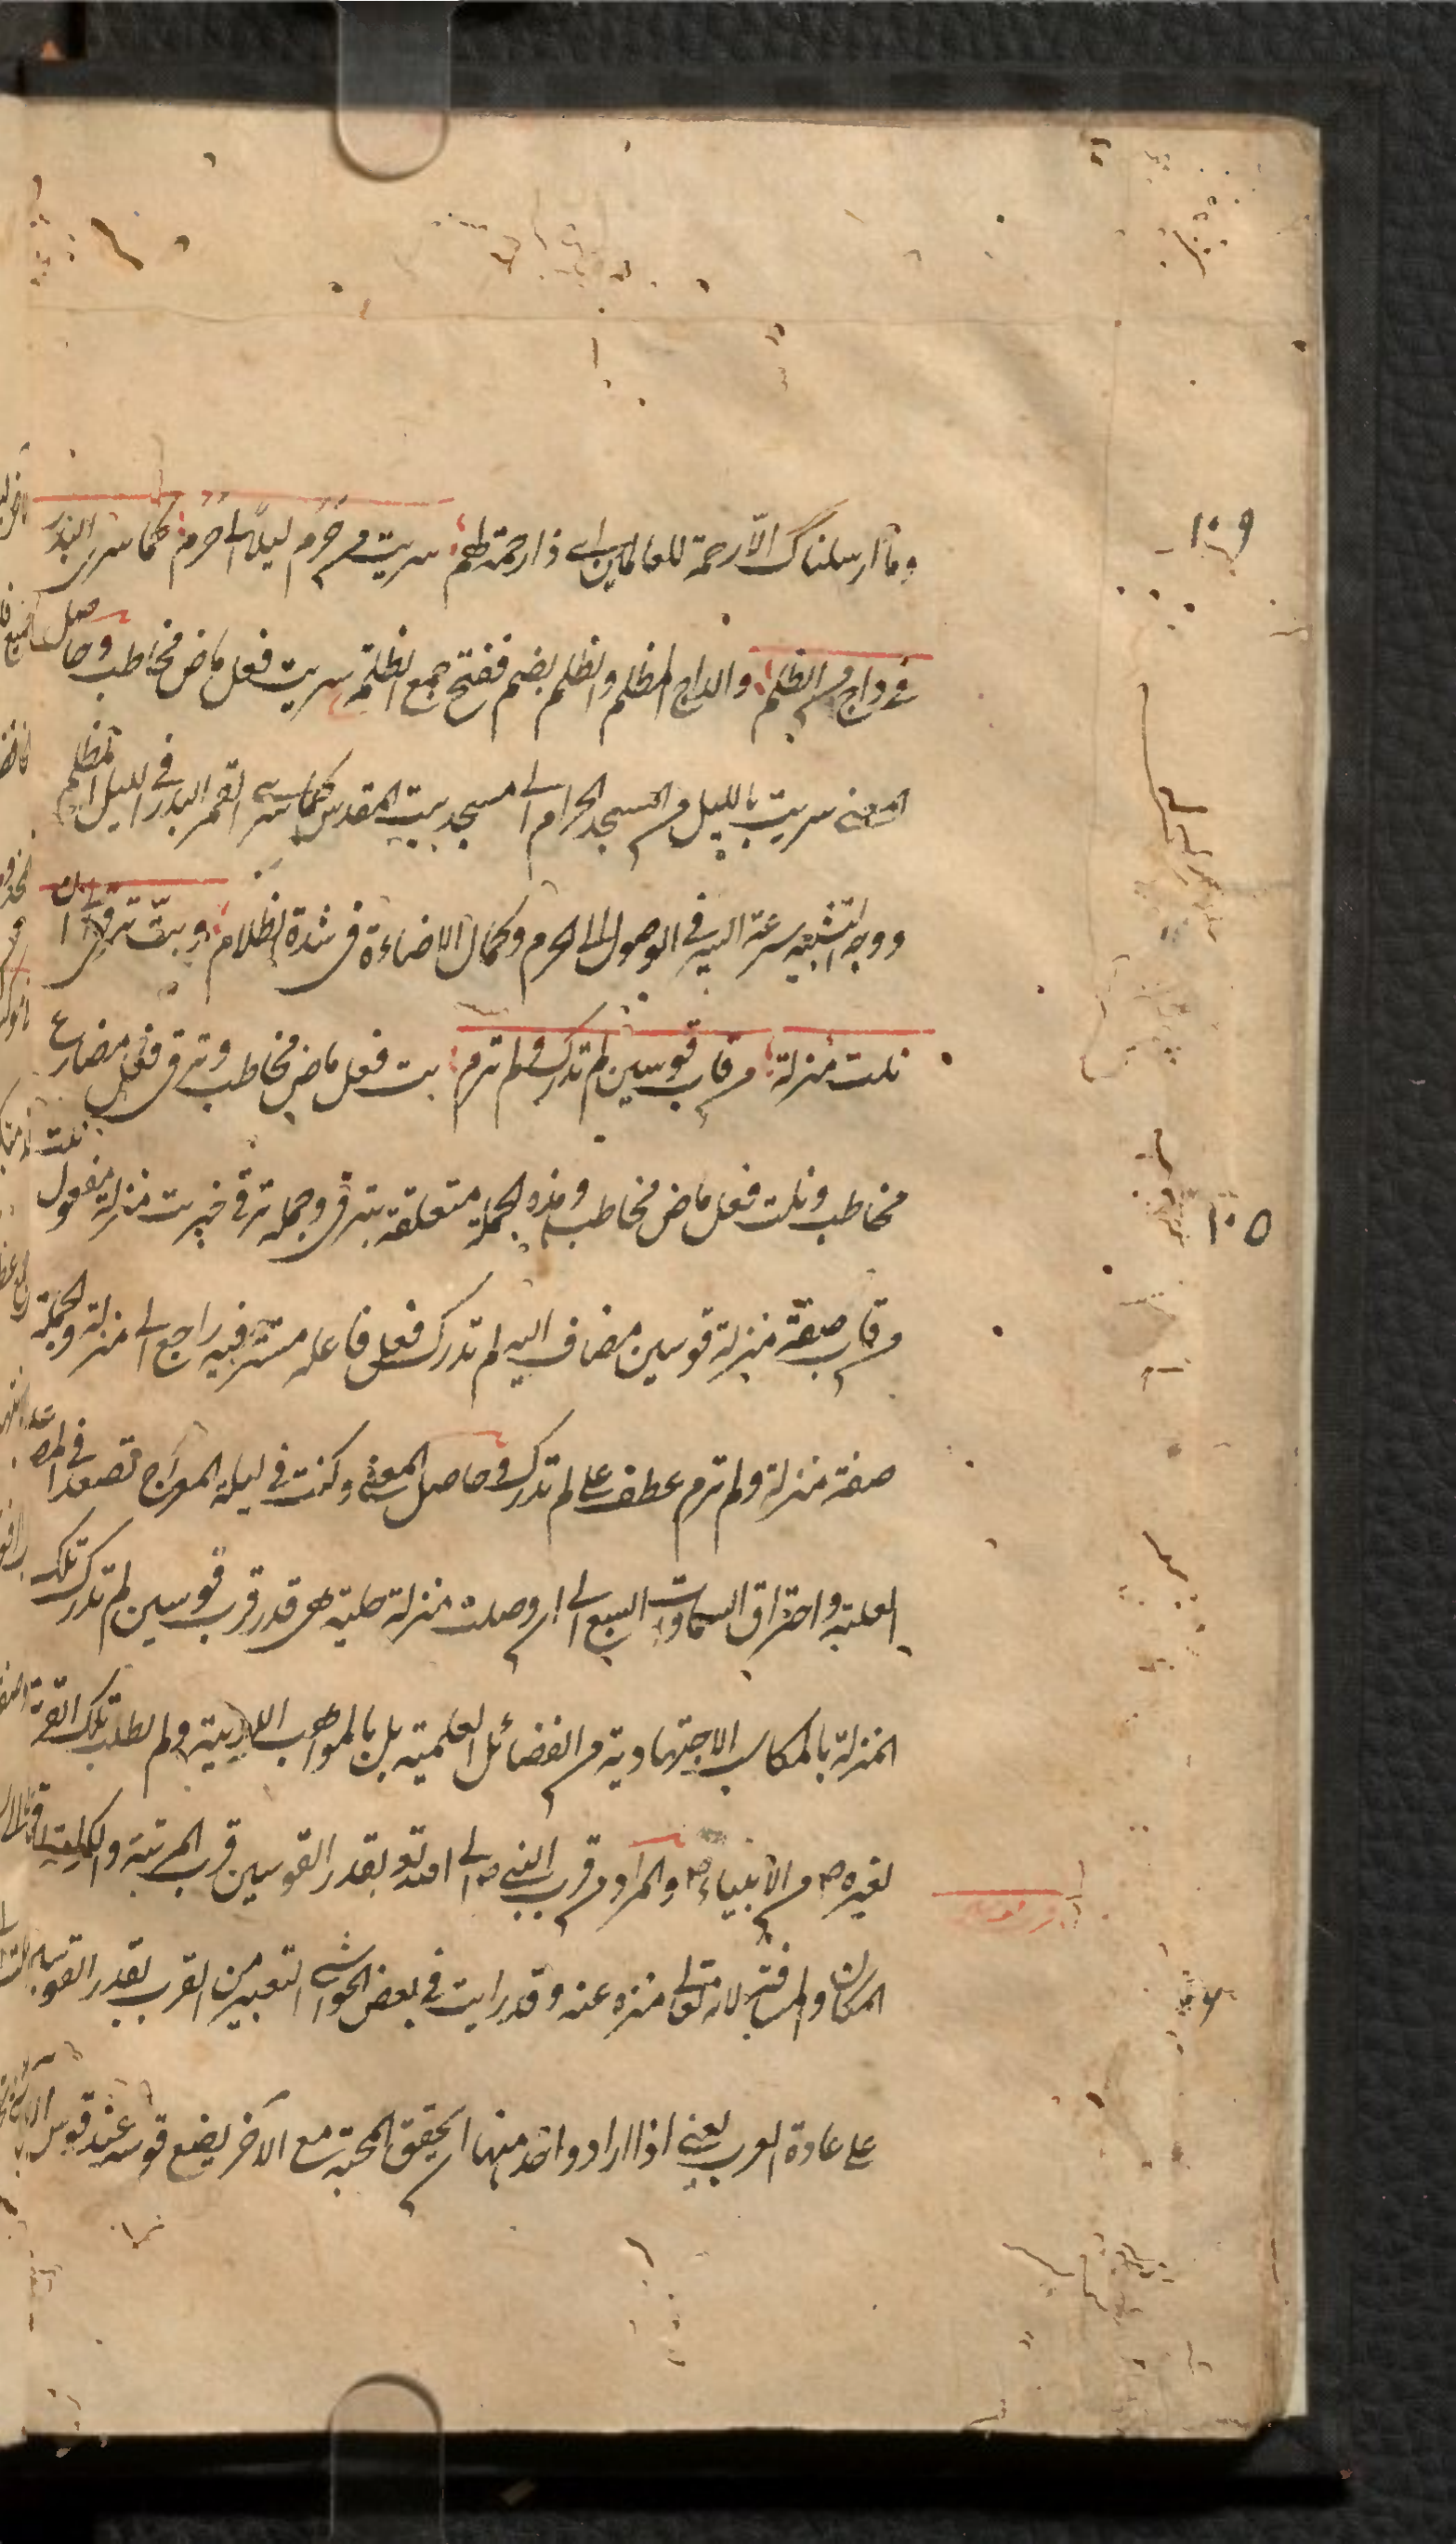 وما ارسلناك الا رحمة للعالمين اے ذا رحمة لهم سريت من حرم ليلا الى حرم كما سرى البدر
فے داج من الظلم والداج المظلم والظلم بضم ففتح جمع الظلمة سريت فعل ماض مخاطب وحاصل
المعنے سريت بالليل من المسجد الحرام الے مسجد بيت المقدس كما سرے القمر البدر فى الليل المظلم
ووجه التشبيه سرعة السير فى الوصول الى الحرم وكمال الاضاءة فى شدة الظلام وبتّ ترقى الى ان
نلت منزلة من قاب قوسين لم تدرك ولم ترم بت فعل ماض مخاطب وترقى فعل مضارع
مخاطب ونلت فعل ماض مخاطب وهذه الجملة متعلقة بترقى وجملة ترقى خبر بت منزلة مفعول نلت
من قاب صفة منزلة قوسين مضاف اليه لم تدرك فعل فاعله مستتر فيه راجع الے منزلة والجملة
صفة منزلة ولم ترم عطف على لم تدرك وحاصل المعنے وكنت فى ليلة المعراج تصعد فى
العلية واختراق السماوات السبع الے ان وصلت منزلة علية هى قدر قرب قوسين لم تدرك تلك
المنزلة بالمكاسب الاجتهادية من الفضائل العلمية بل بالمواهب اللدنية ولم تطلب تلك القربة
لغيره ص من الانبياء ص والمراد من قرب النبے ص الے الله تع بقدر القوسين قرب المرتبة والكرامة لا قرب
المكان والمسافة لانه تعالى منزه عنه وقد رايت فى بعض الحواشے التعبير من القرب بقدر القوسين
على عادة العرب يعنے اذا اراد واحد منهما ان يحقق المحبة مع الآخر يضع قوسه عند قوس
١٠٩
١٠٥